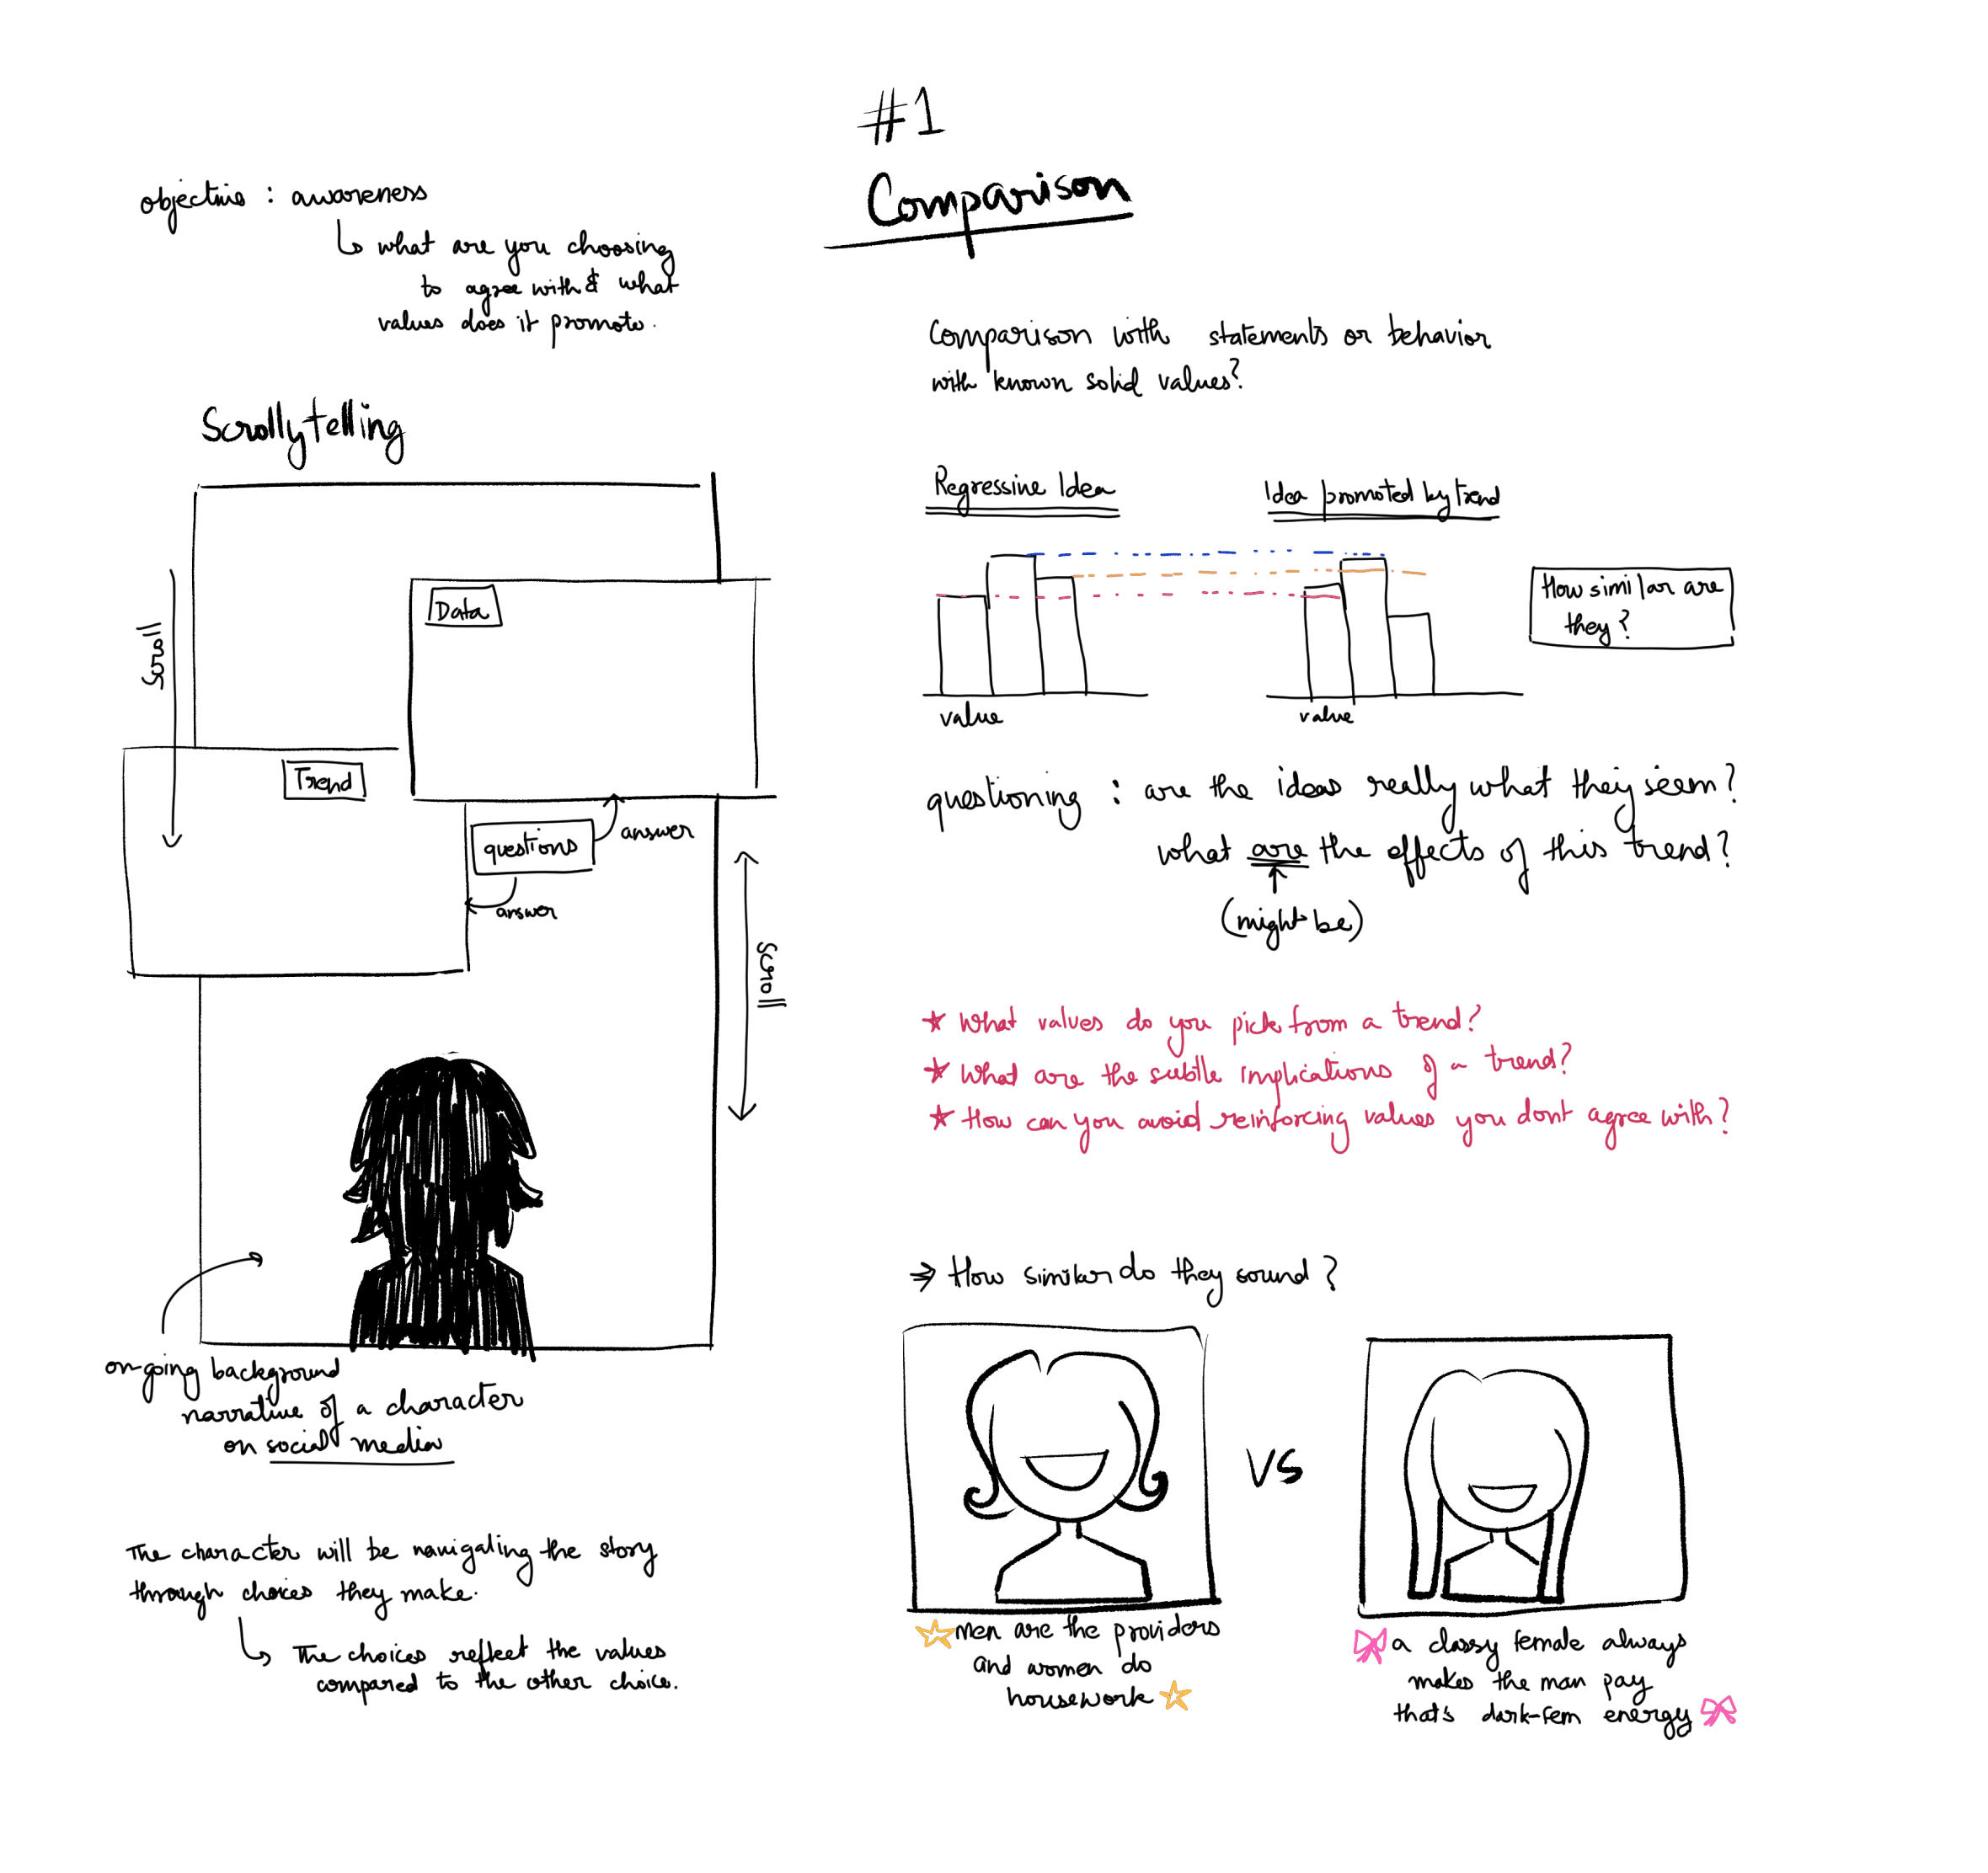 #1
Comparison
objective : awareness
what are you choosing
to agree with & what
values does it promote.
Scrollytelling
Scroll
Data
Trend
questions
answer
answer
Scroll
on-going background
narrative of a character
on social media
The character will be navigating the story
through choices they make.
The choices reflect the values
compared to the other choice.
Comparison with statements or behavior
with known solid values?
Regressive Idea
Idea promoted by trend
How similar are
they?
value
value
questioning : are the ideas really what they seem?
what are the effects of this trend?
(might be)
★ What values do you pick from a trend?
★ What are the subtle implications of a trend?
★ How can you avoid reinforcing values you dont agree with?
⇒ How similar do they sound?
VS
☆ men are the providers
and women do
housework ☆
a classy female always
makes the man pay
that's dark-fem energy